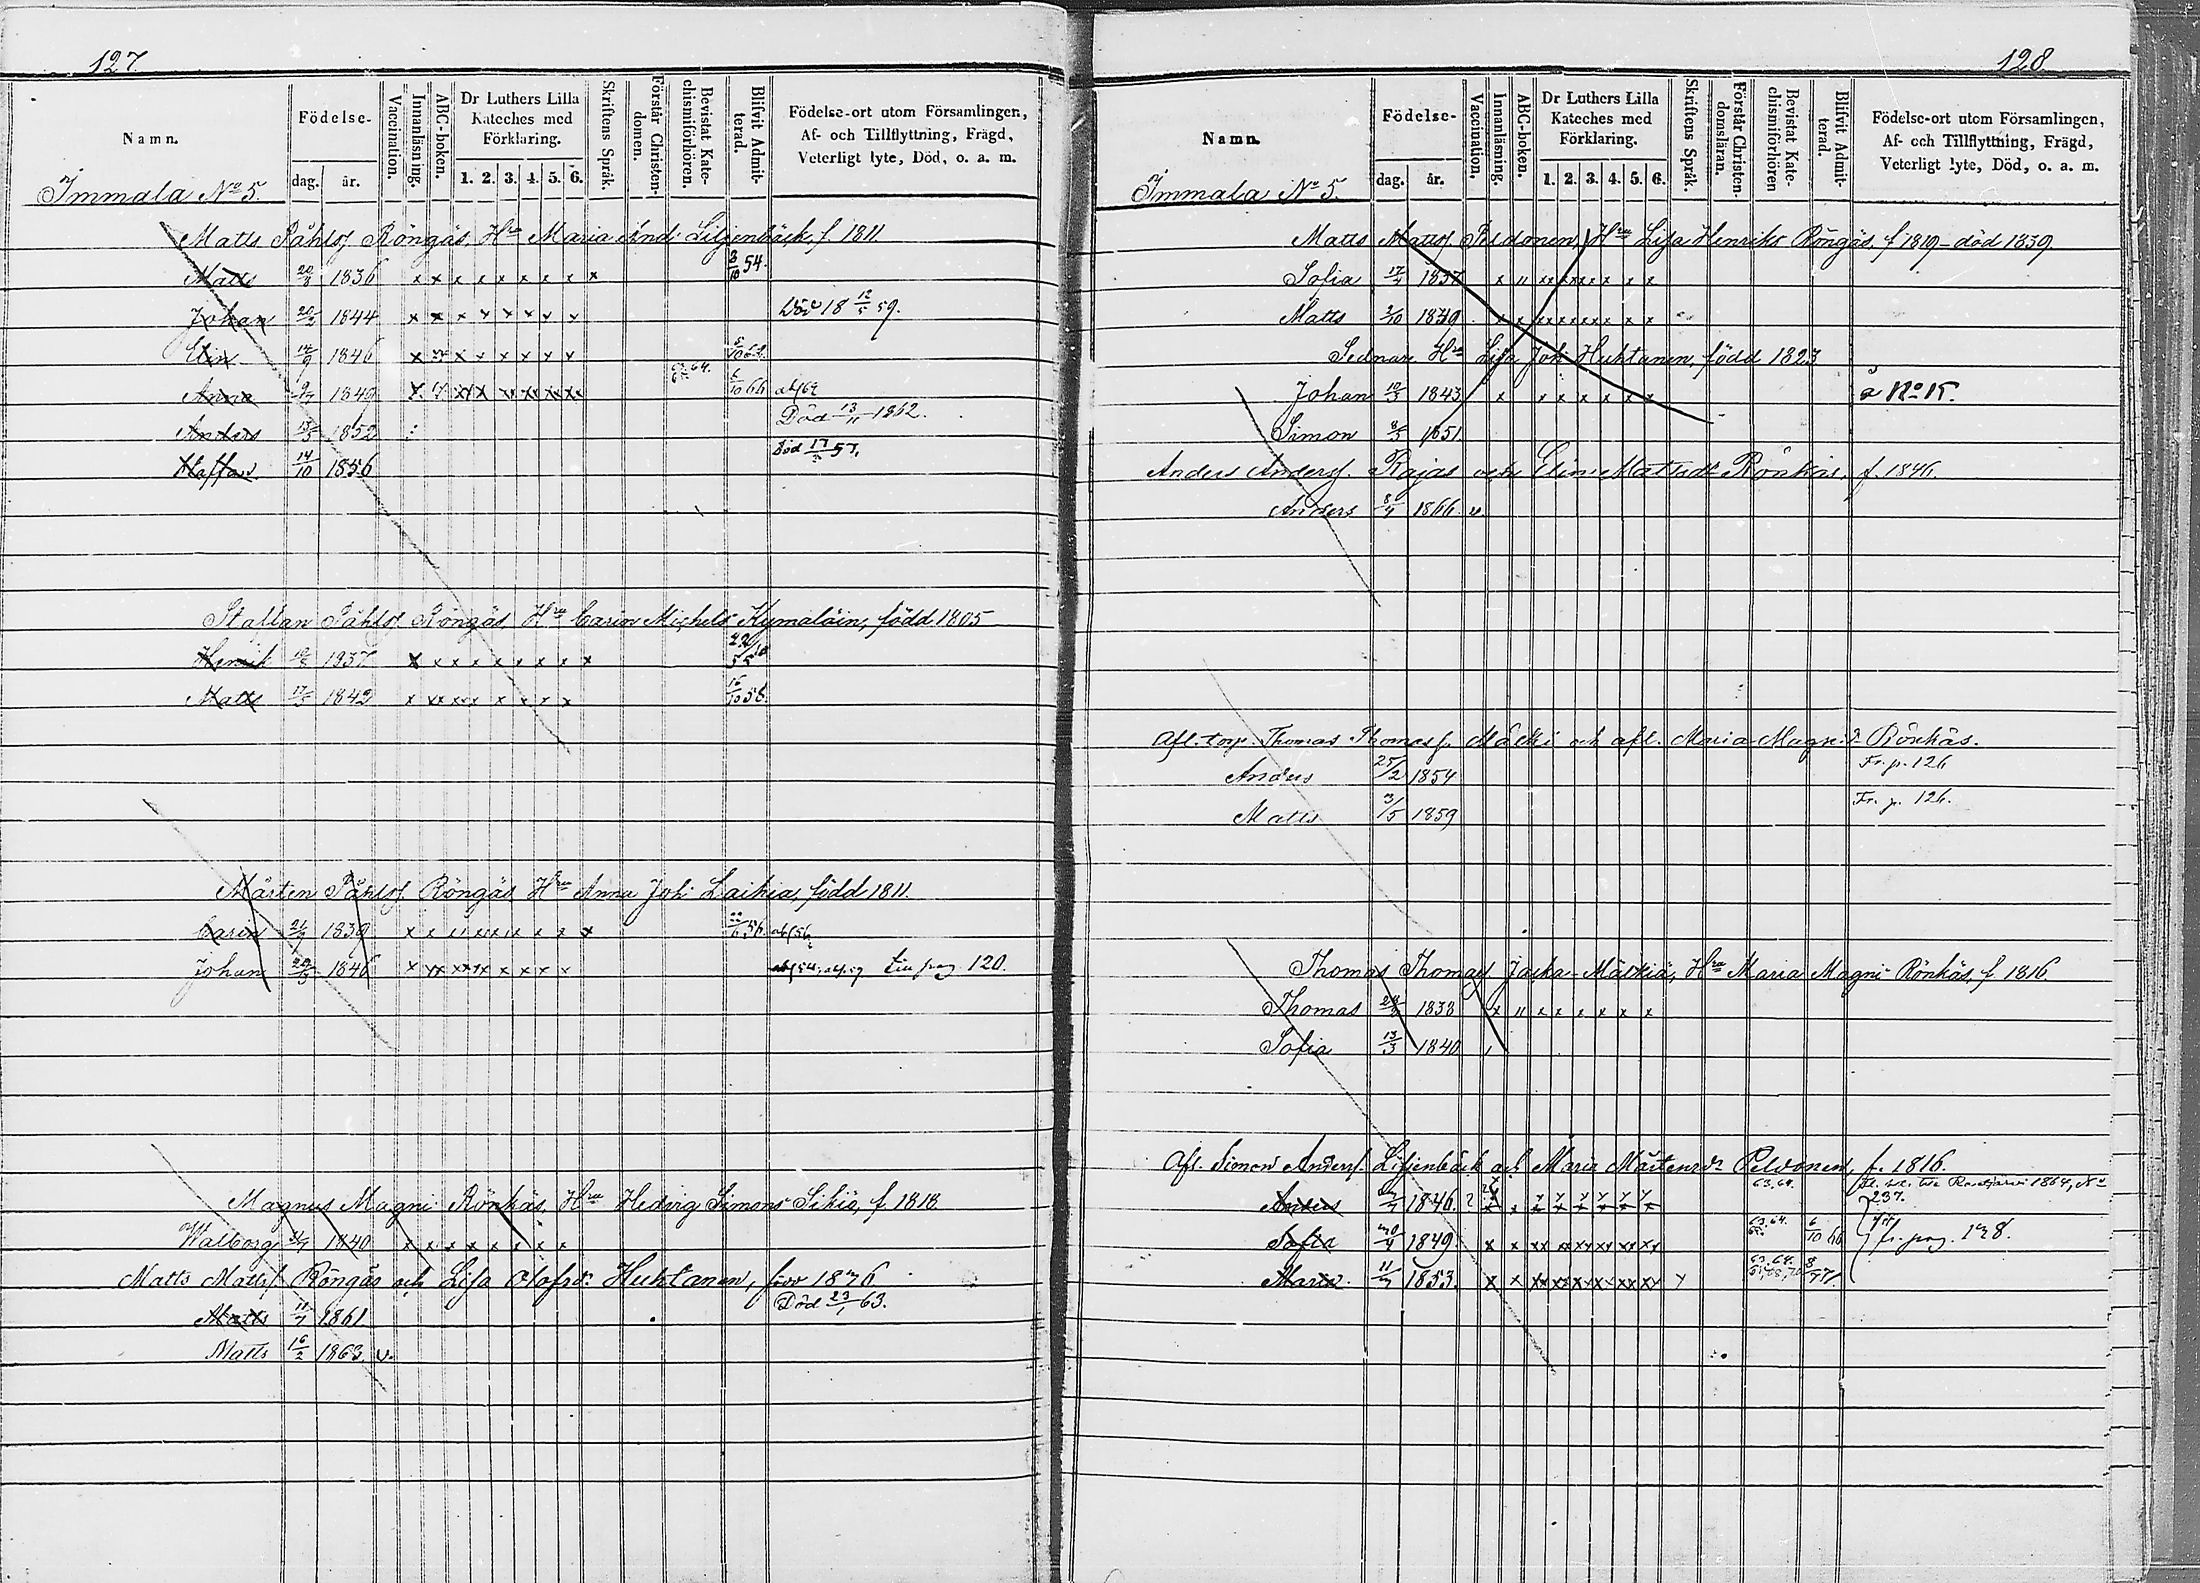 127.
Namn.
Födelse-
dag. år.
Vaccination.
Innanläsning.
ABC-boken.
Dr Luthers Lilla Kateches med Förklaring.
1. 2. 3. 4. 5. 6.
Skriftens Språk.
Förstår Christendomen.
Bevistat Katechismiförhören.
Blifvit Admitterad.
Födelse-ort utom Församlingen, Af- och Tillflyttning, Frägd, Veterligt lyte, Död, o. a. m.
Immala No 5.
Matts Påhlsf Röngäs, Hru Maria And: Liljenbäck, f. 1811.
Matts 20/3 1836 x x x x x x x x x 3/10 54.
Johan 20/2 1844 x x x x x x x x Död 18 12/5 59.
Elin 14/9 1846 x x x x x x x
Anna 1849 63.64. 6/10 66
Anders 1852 Död 13/11 1862.
Staffan 14/10 1856 Död 57.
Staffan Påhlsf. Röngäs, Hru Carin Michels Kymaläin, född 1805
Henrik 1837 x x x x x x x x x
Matts 17/5 1842 x x x x x x x 15/10 58.
Mårten Påhlsf. Röngäs, Hru Anna Joh: Laikia, född 1811.
Carin 1839 x x x x x x x x 56.
Johan 1846 x x x x x x x 120.
Magnus Magni Rönkäs, Hru Hedvig Simons Sikiö, f. 1818.
Walborg 1840 x x x x x x x x
Matts Mattsf. Röngäs och Lisa Olofsdr Huhtanen, född 1836
Matts 11/7 1861 Död 23/1 63.
Matts 16/2 1863. v.
128
Namn.
Födelse-
dag. år.
Vaccination.
Innanläsning.
ABC-boken.
Dr Luthers Lilla Kateches med Förklaring.
1. 2. 3. 4. 5. 6.
Skriftens Språk.
Förstår Christendomsläran.
Bevistat Katechismiförhören
Blifvit Admitterad.
Födelse-ort utom Församlingen, Af- och Tillflyttning, Frägd, Veterligt lyte, Död, o. a. m.
Immala No 5.
Matts Mattsf. Peldonen, Hru Lisa Henriks Röngäs, f 1819 – död 1839
Sofia 17/4 1837
Matts 2/10 1839
Sednare Hru Lisa Joh: Huhtanen, född 1823
Johan 10/3 1843 å No 15.
Simon 8/5 1851
Anders Andersf. Rajas och Elin Mattsdr Rönkäs, f. 1846.
Anders 8/4 1866. v.
Afl. torp. Thomas Thomasf. Mäcki och afl. Maria Magni dr Rönkäs.
Anders 25/2 1854 Fr. p. 126
Matts 3/5 1859 Fr. p. 126.
Thomas Thomasf Jacka-Mäckiä, Hru Maria Magni Rönkäs, f. 1816.
Thomas 1838 x " x x x x x x
Sofia 13/3 1840
Afl. Simon Andersf. Liljenbäck och Maria Mårtensdr Peldonen, f. 1816.
Anders 1846. 63.64. 1864, No 237.
Sofia 1849 63.64. 6/10 66 fr. pag. 128.
Maria 11/7 1853. 63.64.